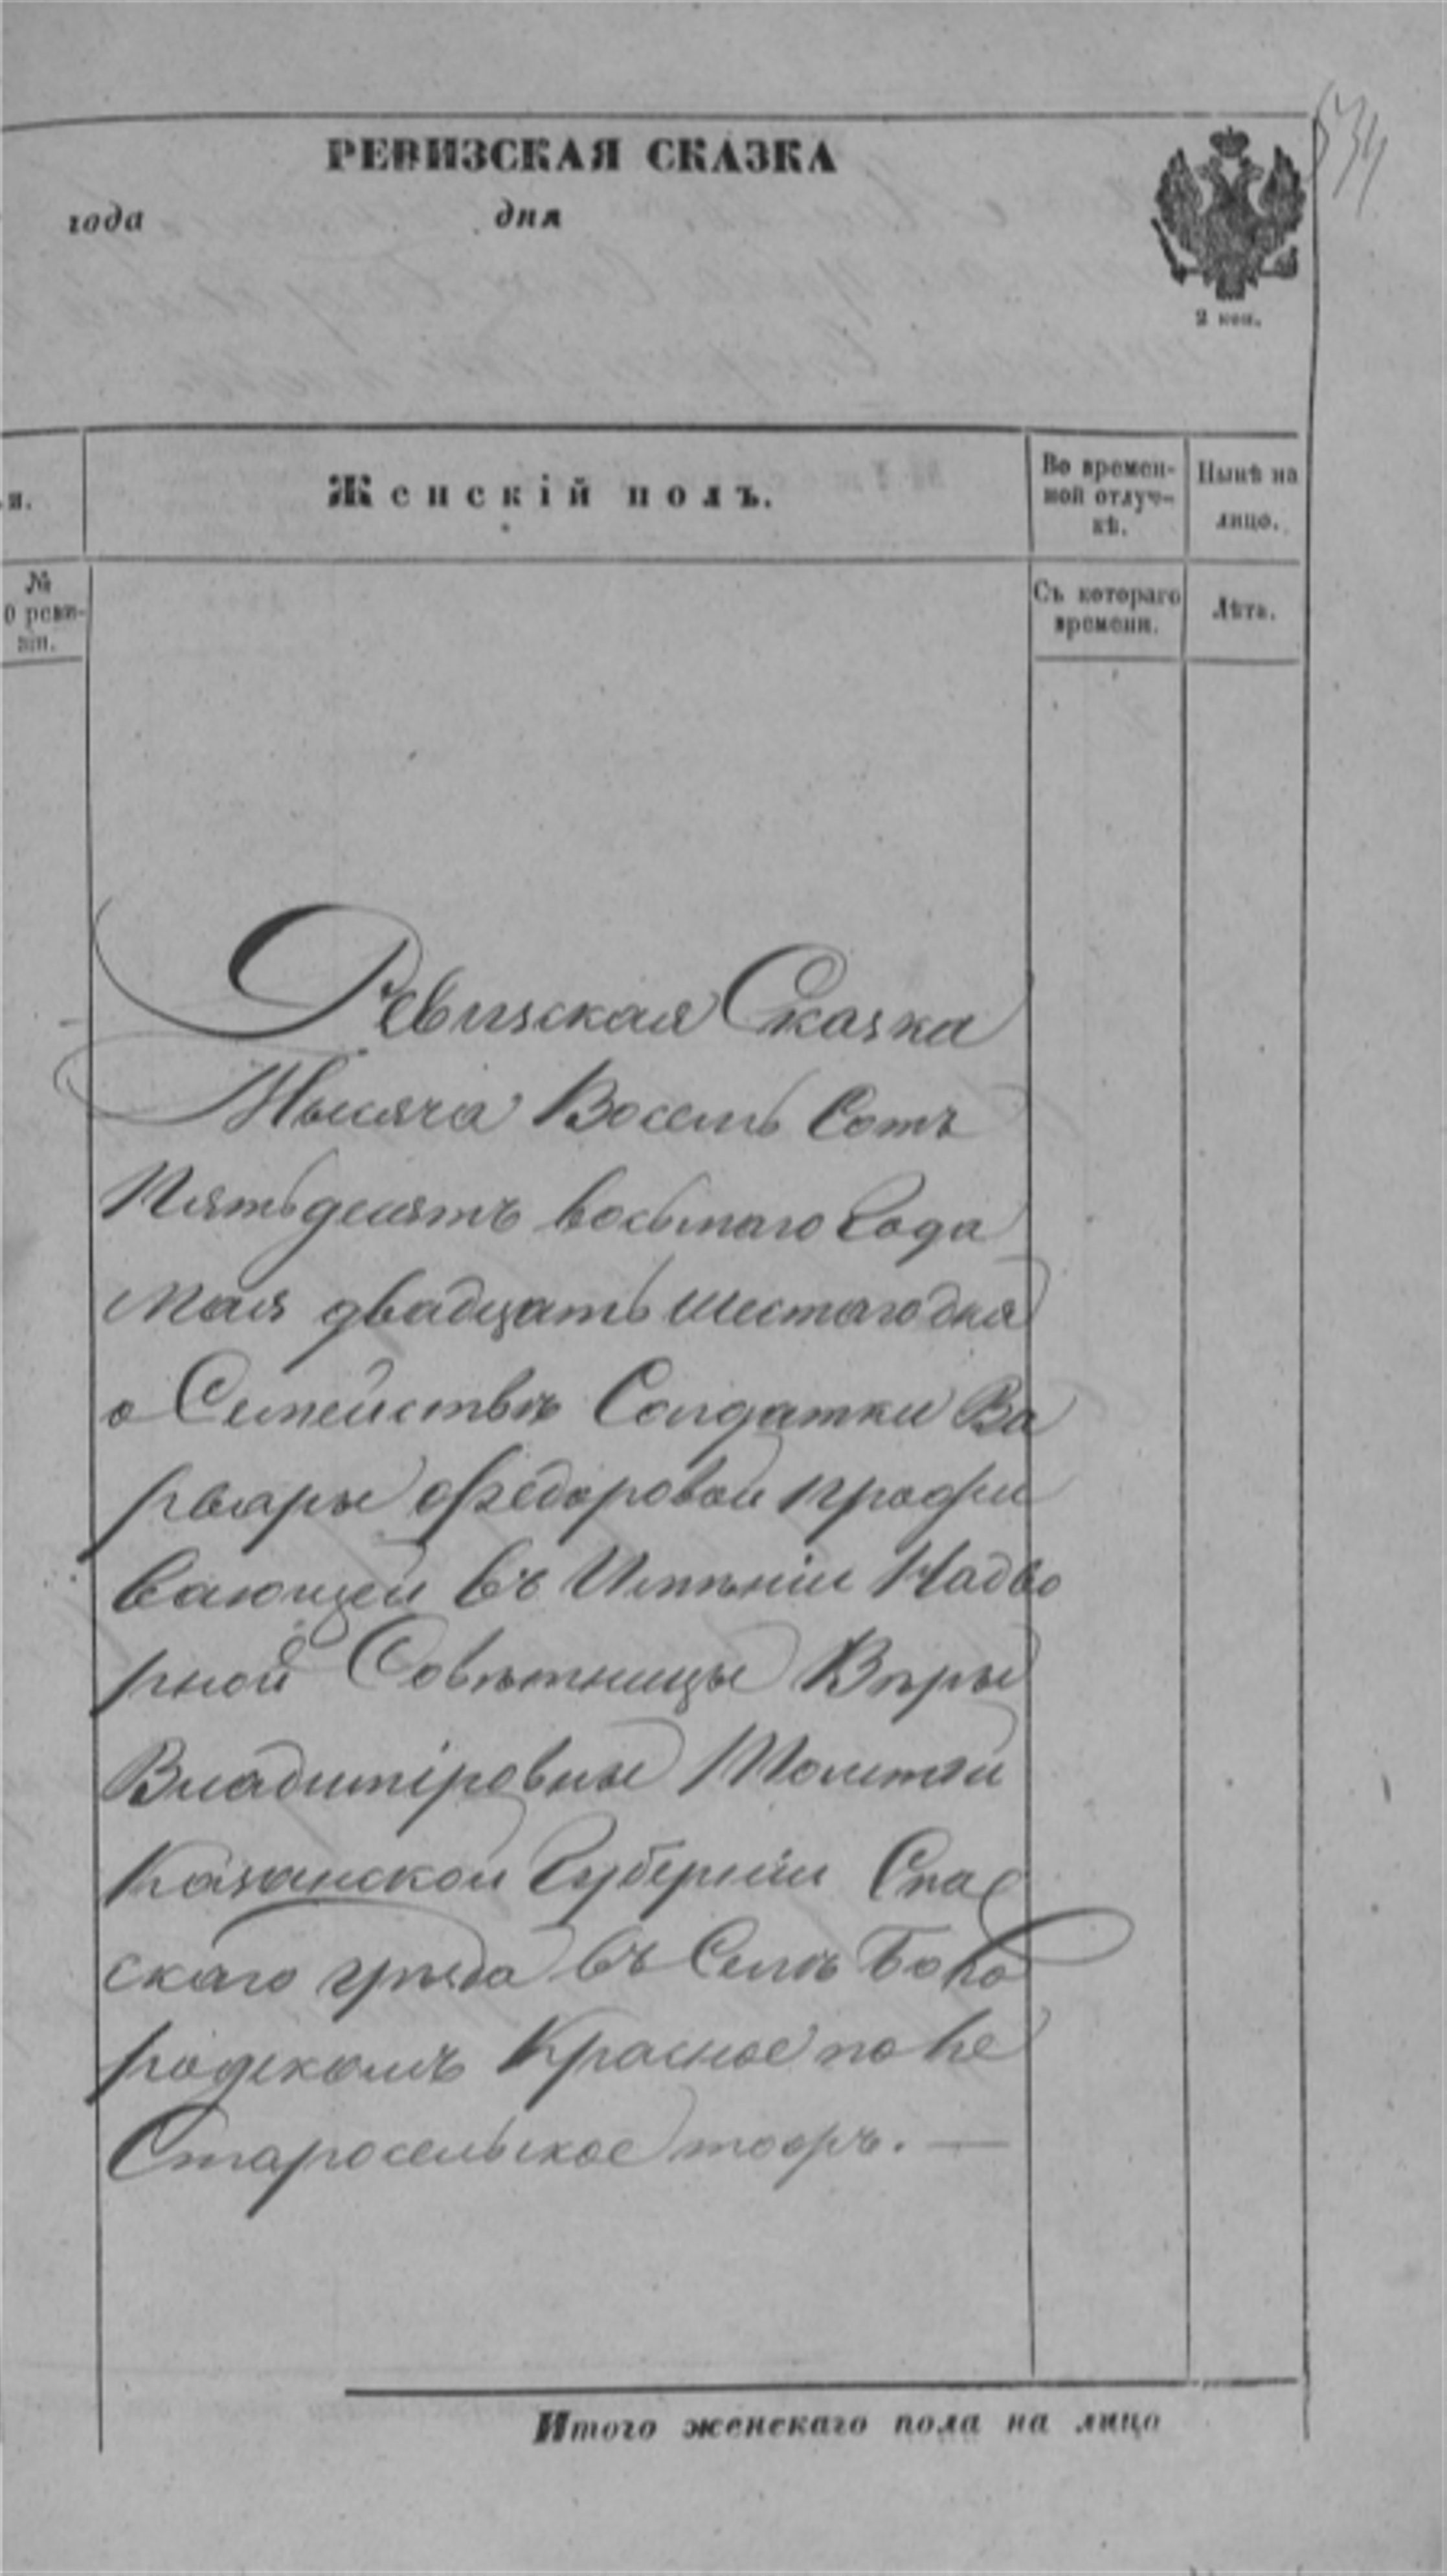 534
РЕВИЗСКАЯ СКАЗКА
года дня
2 коп.
.я.
Женскій полъ.
Во времен-
ной отлуч-
кѣ.
Нынѣ на
лицо.
№
0 реви-
зіи.
Съ котораго
времени.
Лѣта.
Ревизская Сказка
Тысяча Восемь Сотъ
Пятьдесятъ восьмаго Года
Мая двадцать шестаго дня
о Семействѣ Солдатки Ва
рвары Федоровой прожи
вающей въ Имѣніи Надво
рной Совѣтницы Вѣры
Владиміровны Толстой
Казанской Губерніи Спас
скаго уѣзда въ Селѣ Бого
родскомъ Красное
Старосельское тожъ. —
Итого женскаго пола на лицо